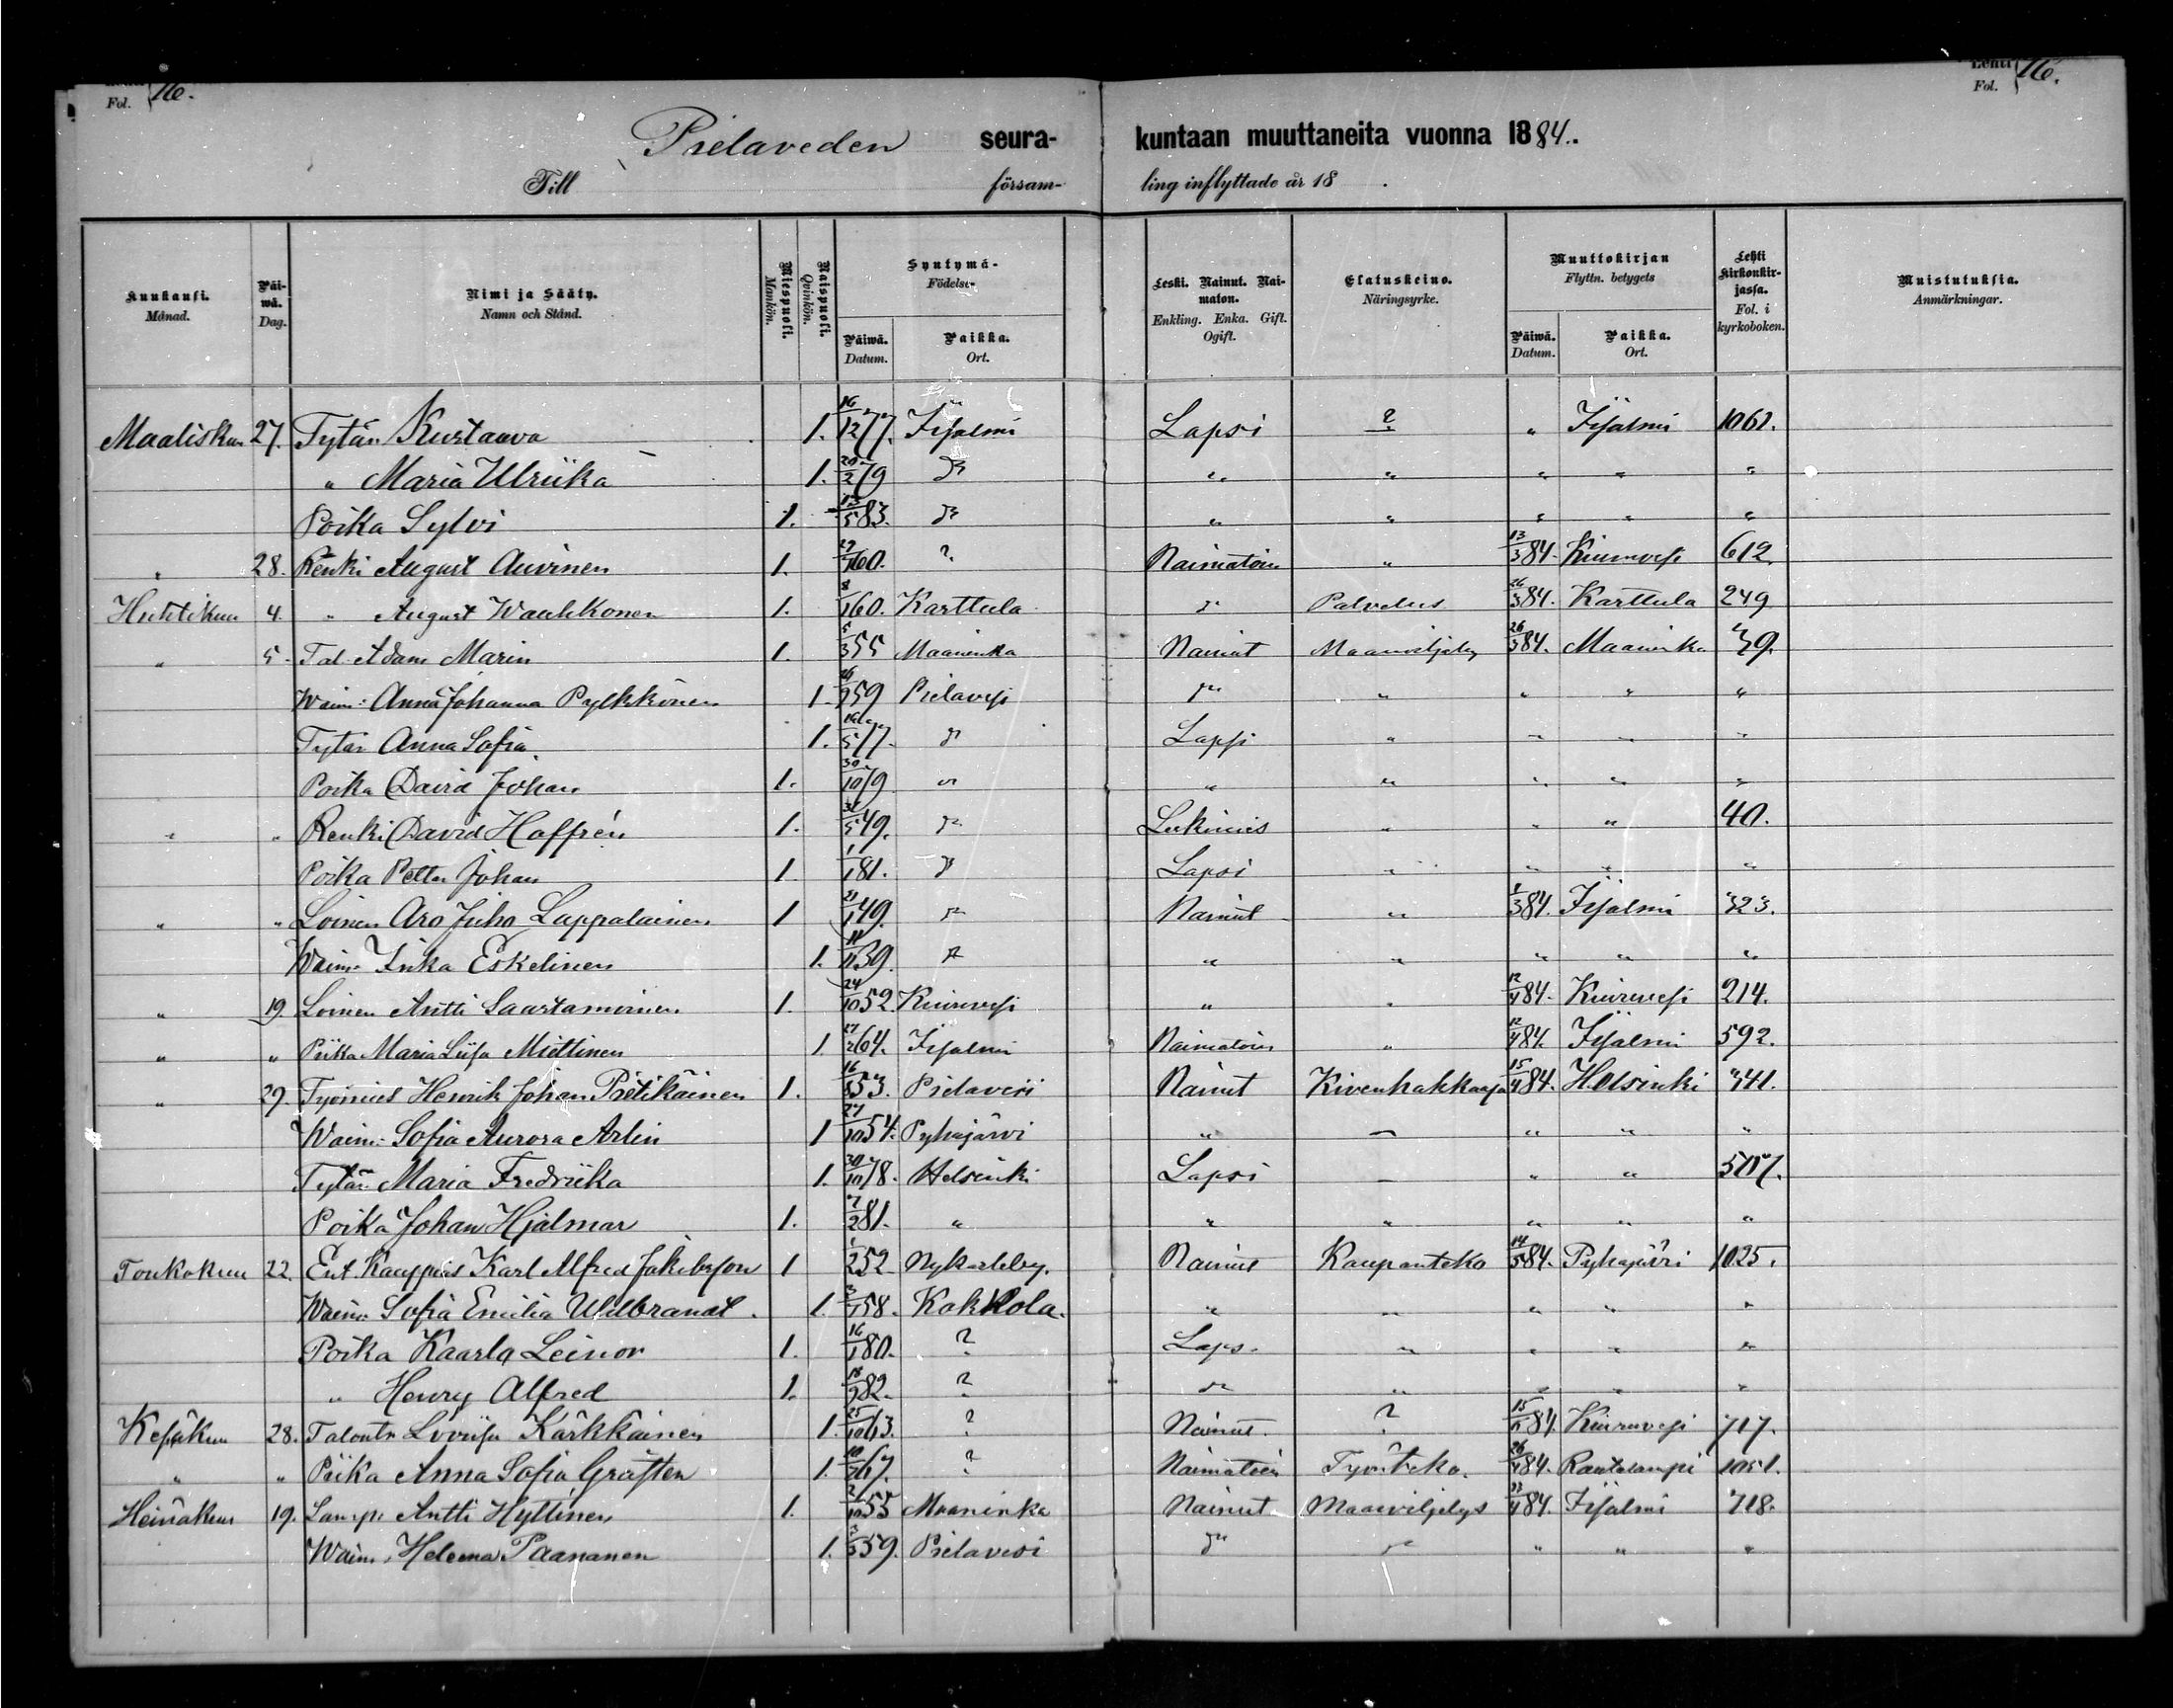 Fol. 76.
Lehti Fol. 76.
Pielaveden seura- kuntaan muuttaneita vuonna 1884.
Till försam- ling inflyttade år 18 .
Kuukausi. Månad.
Päi-wä. Dag.
Nimi ja Sääty. Namn och Stånd.
Miespuoli. Mankön.
Naispuoli. Qvinkön.
Syntymä- Födelse-
Päiwä. Datum.
Paikka. Ort.
Leski. Nainut. Nai-maton. Enkling. Enka. Gift. Ogift.
Elatuskeino. Näringsyrke.
Muuttokirjan Flyttn. betygets
Päiwä. Datum.
Paikka. Ort.
Lehti Kirkonkir-jassa. Fol. i kyrkoboken.
Muistutuksia. Anmärkningar.
Maaliskuu 27. Tytär Kustaava 1. 16/12 77. Iisalmi Lapsi ? " Iisalmi 1061.
" Maria Ulriika 1. 20/2 79 do " " " " "
Poika Sylvi 1. 13/5 83. do " " " " "
" 28. Renki August Auvinen 1. 60. ? Naimatoin " 13/3 84. Kiuruvesi 612.
Huhtikuu 4. " August Waahkonen 1. 8/1 60. Karttula do Palvelus 26/3 84. Karttula 249
" 5. Tal. Adam Marin 1. 5/3 55 Maaninka Nainut Maanviljely 26/3 84. Maaninka 39.
Waim: Anna Johanna Pylkkönen 1. 59 Pielavesi do " " " "
Tytär Anna Sofia 1. 77. do Lapsi " " " "
Poika David Johan 1. 30/10 79 " " " " " "
" " Renki David Haffrén 1. 31/5 49. do Leskimies " " " 40.
Poika Petter Johan 1 1/1 81. do Lapsi " " " "
" " Loinen Aro Juho Lappalainen 1 21/1 49. do Nainut " 1/3 84. Iisalmi 323.
Waim. Inka Eskelinen 1. 11/11 39. do " " " " "
" 19. Loinen Antti Saastamoinen 1. 24/10 52. Kiuruvesi " " 12/4 84. Kiuruvesi 214.
" " Piika Maria Liisa Miettinen 1. 27/2 64. Iisalmi Naimatoin " 12/4 84. Iisalmi 592.
" 29. Työmies Henrik Johan Pietikäinen 1. 16/5 53. Pielavesi Nainut Kivenhakkaaja 15/4 84. Helsinki 341.
Waim: Sofia Aurora Arlin 1 27/10 54. Pyhäjärvi " — " " "
Tytär Maria Fredriika 1. 30/10 78. Helsinki Lapsi — " "
Poika Johan Hjalmar 1. 7/2 81. " " " " " "
Toukokuu 22. Ent. Kauppias Karl Alfred Jakobsson 1 1/2 52 Nykarleby. Nainut Kaupanteko 14/5 84. Pyhäjärvi 1025.
Waim: Sofia Emilia Uhlbrandt. 1. 3/1 58. Kokkola. " " " " "
Poika Kaarlo Leinor 1. 16/1 80. ? Laps. " " " "
" Henry Alfred 1. 18/9 82. ? do " " " "
Kesäkuu 28. Talontr Loviisa Kärkkäinen 1. 25/10 63. ? Nainut. ? 15/6 84. Kiuruvesi 717.
" " Piika Anna Sofia Grästen 1. 67. ? Naimatoin Työnteko. 26/4 84. Rautalampi 1051.
Heinäkuu 19. Lamp. Antti Hyttinen 1. 2/10 55 Maaninka Nainut Maanviljelys 84. Iisalmi 718.
Waim. Heleena Paananen 1. 59. Pielavesi do do " " "